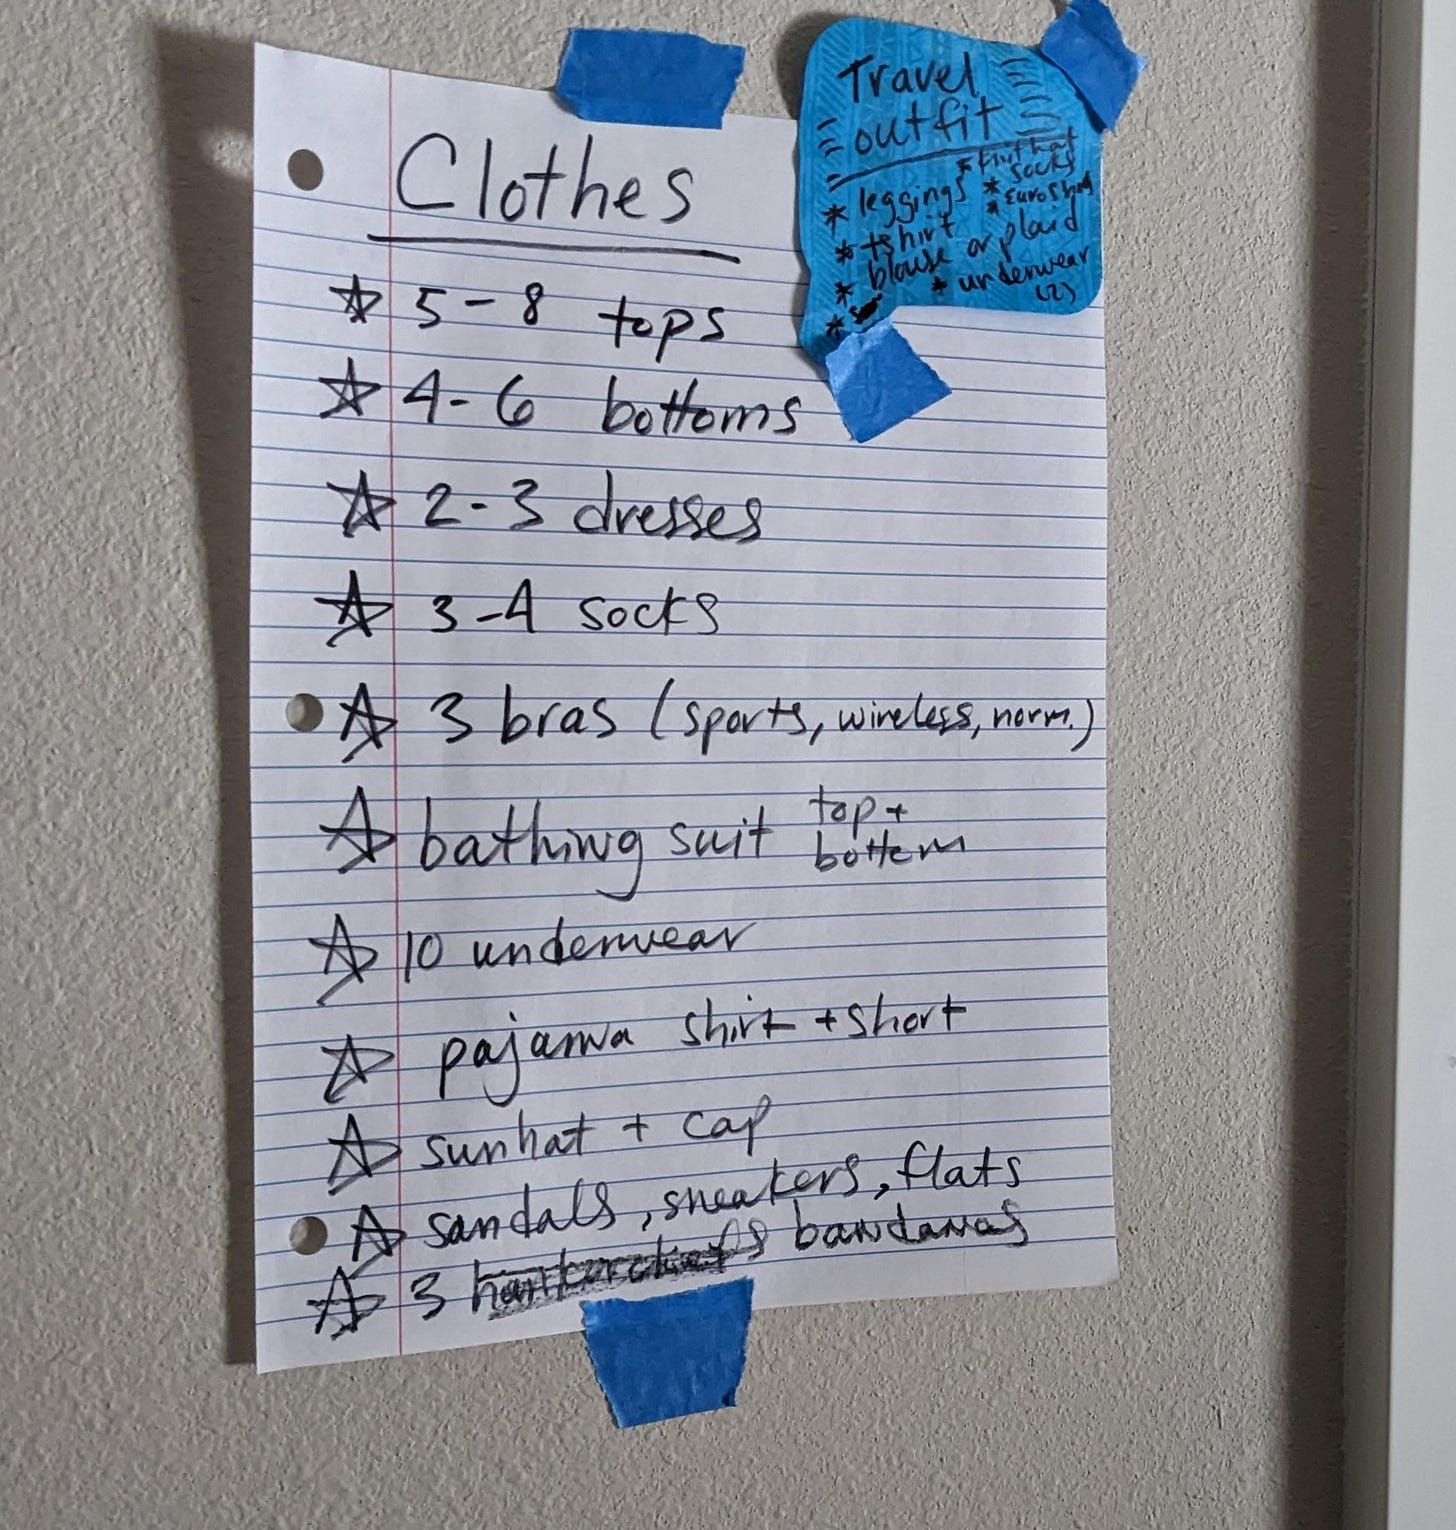 Clothes
5-8 tops
4-6 bottoms
2-3 dresses
3-4 socks
3 bras (sports, wireless, norm.)
bathing suit top +
bottom
10 underwear
pajama shirt + short
sunhat + cap
sandals, sneakers, flats
3 bandanas
Travel
outfit
* leggings * socks
* tshirt
* blouse or plaid
* underwear
(2)